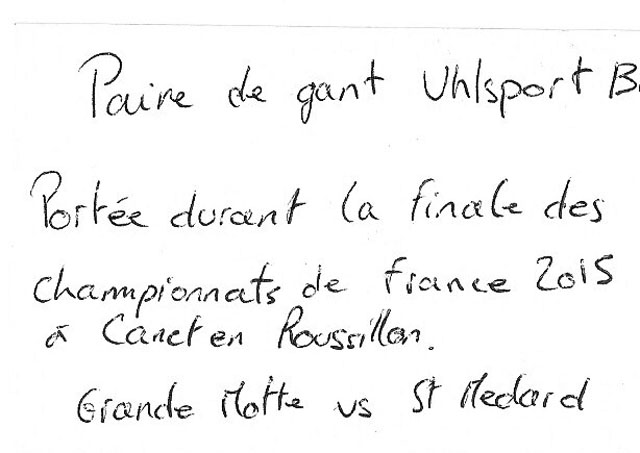 Paire de gant Uhlsport B
Portée durant la finale des
championnats de france 2015
à Canet en Roussillon.
Grande Motte vs St Medard